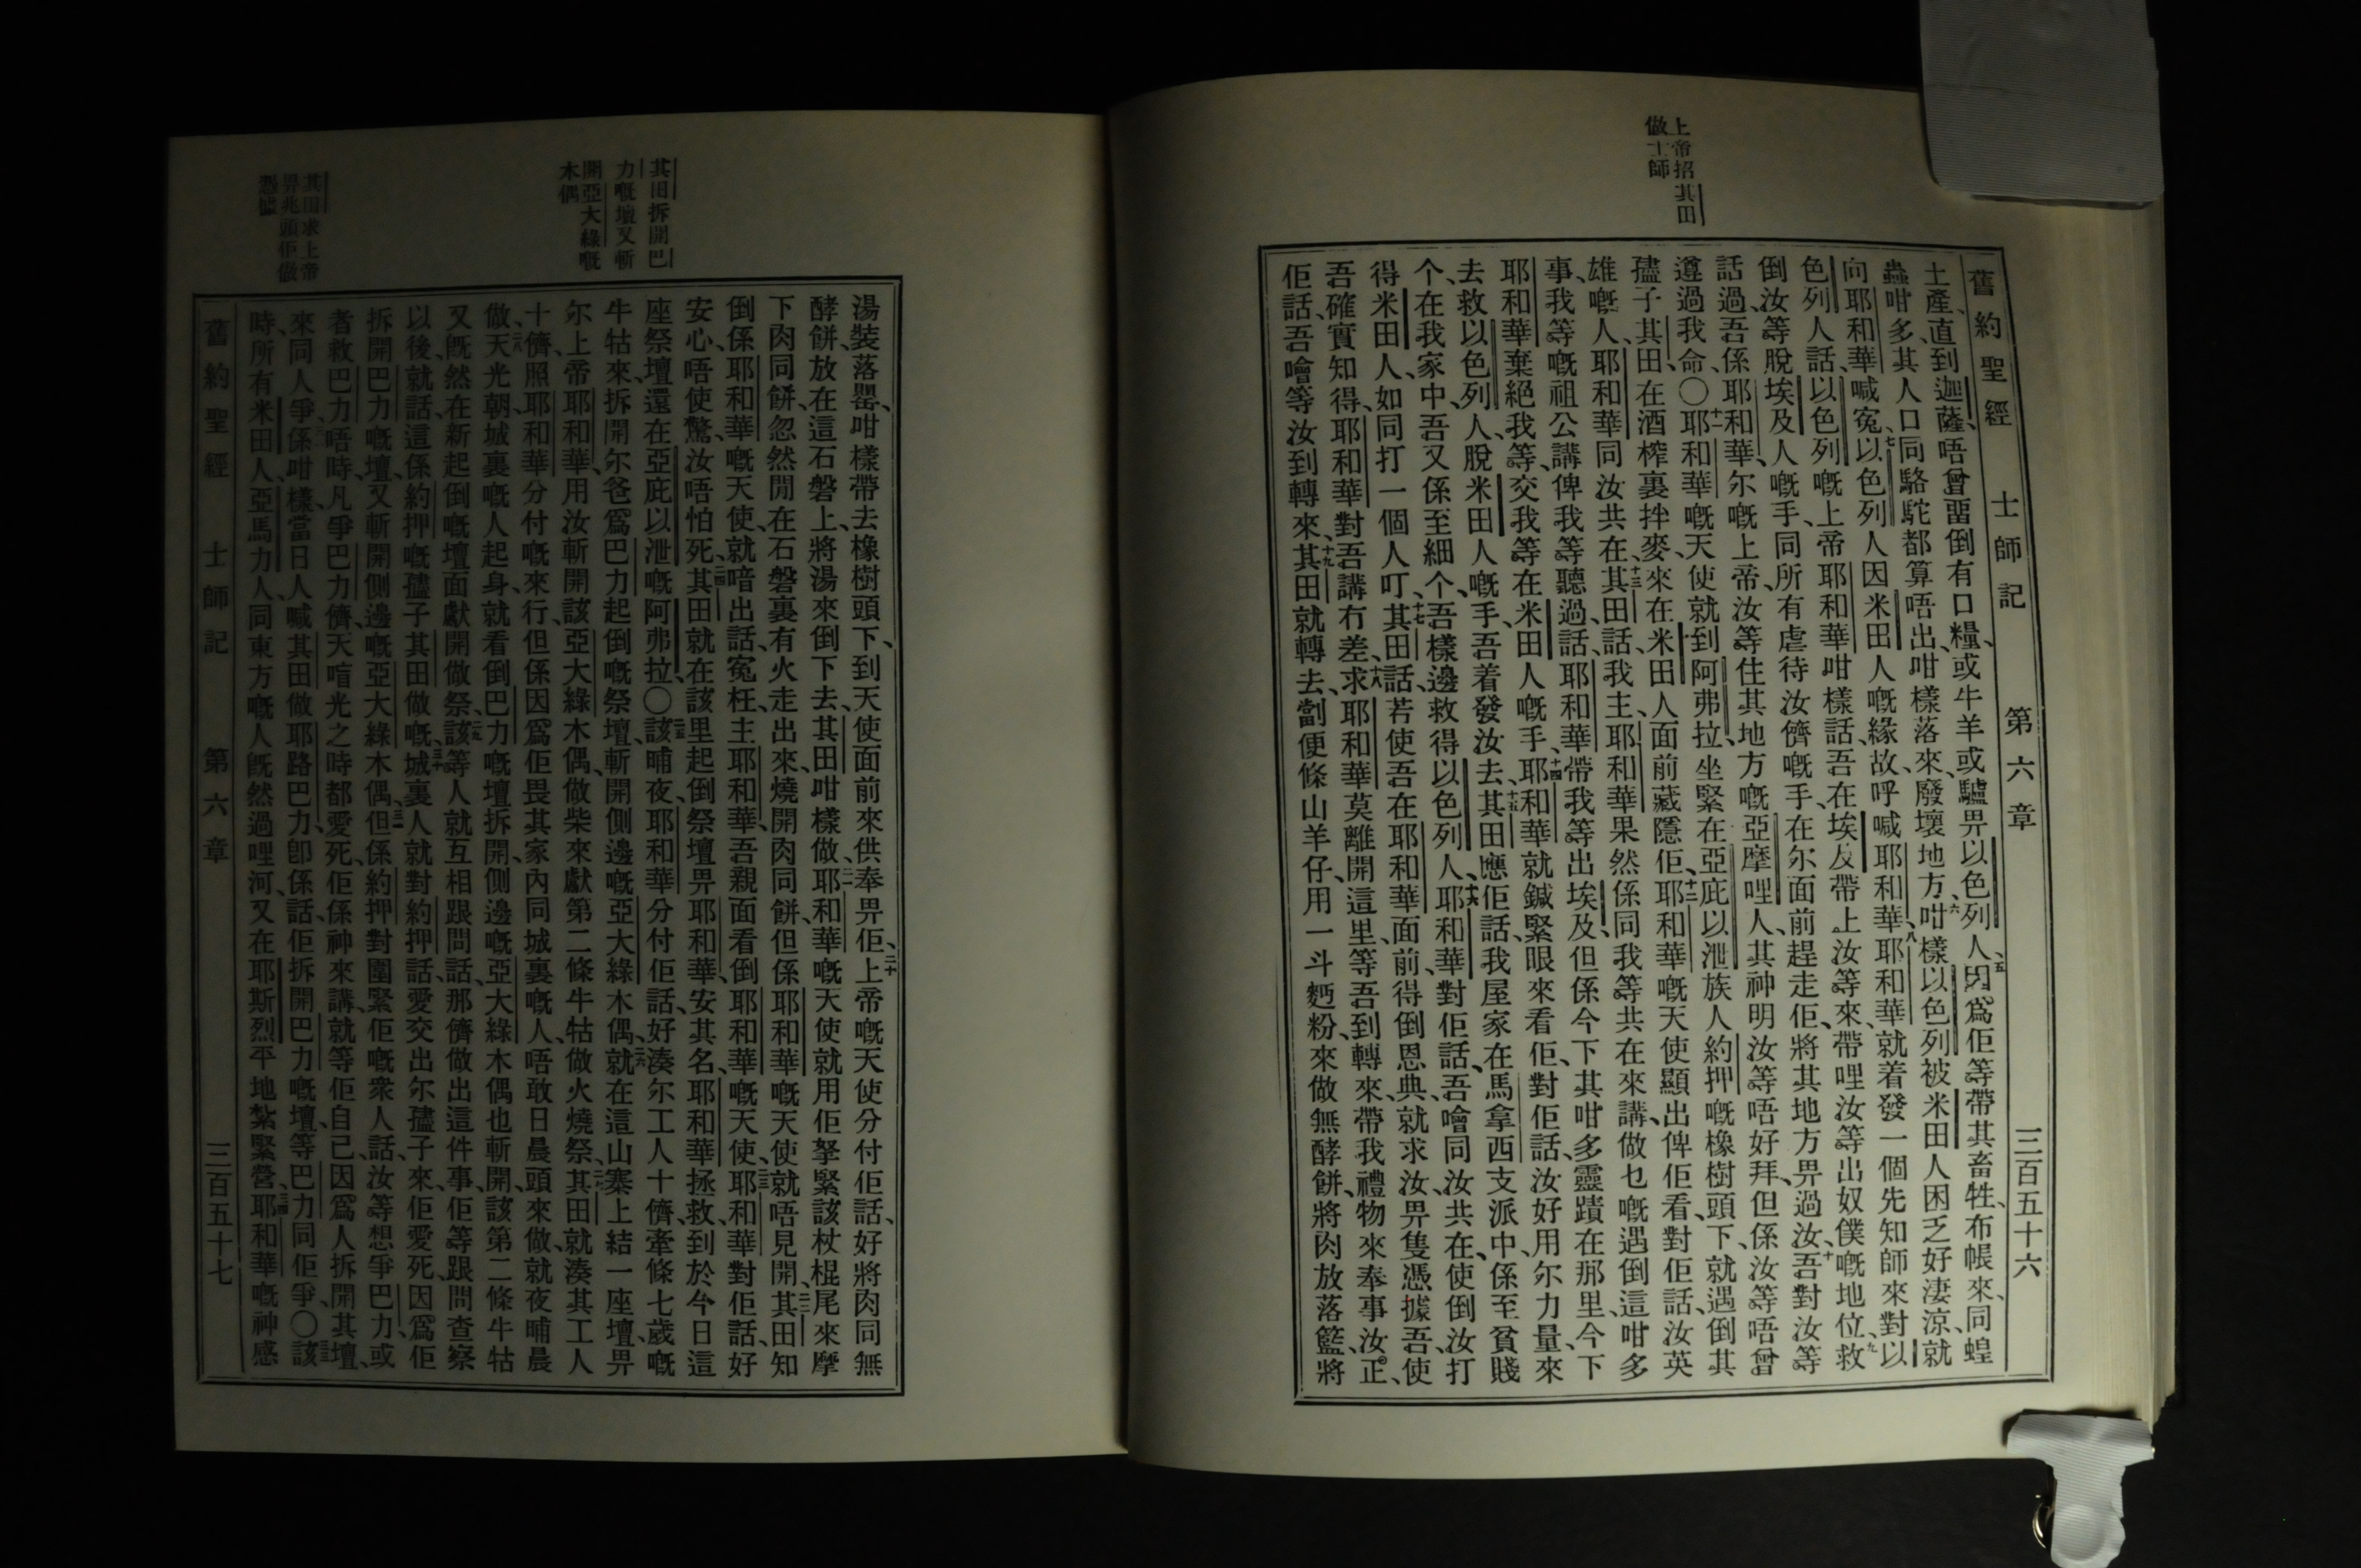 上帝招其田
做士師
舊約聖經 士師記 第六章 三百五十六
土產、直到迦薩、唔曾畱倒有口糧、或牛羊或驢畀以色列人、五因爲佢等帶其畜牲、布帳來、同蝗
蟲咁多、其人口同駱駝都算唔出、咁樣落來、廢壞地方、六咁樣以色列被米田人困乏好淒涼、就
向耶和華喊寃、七以色列人因米田人嘅緣故、呼喊耶和華、八耶和華就着發一個先知師來對以
色列人話、以色列嘅上帝耶和華咁樣話、吾在埃及帶上汝等來、帶哩汝等出奴僕嘅地位、九救
倒汝等脫埃及人嘅手、同所有虐待汝儕嘅手、在尔面前趕走佢、將其地方畀過汝、十吾對汝等
話過、吾係耶和華、尔嘅上帝、汝等住其地方嘅亞摩哩人、其神明汝等唔好拜、但係汝等唔曾
遵過我命〇十一耶和華嘅天使就到阿弗拉、坐緊在亞庇以泄族人約押嘅橡樹頭下、就遇倒其
孻子其田在酒榨裏拌麥、來在米田人面前藏隱佢、十二耶和華嘅天使顯出俾佢看、對佢話、汝英
雄嘅人、耶和華同汝共在、十三其田話、我主、耶和華果然係同我等共在來講、做乜嘅遇倒這咁多
事、我等嘅祖公講俾我等聽過、話、耶和華帶我等出埃及、但係今下其咁多靈蹟在那里、今下
耶和華棄絕我等、交我等在米田人嘅手、十四耶和華就鍼緊眼來看佢、對佢話、汝好用尔力量、來
去救以色列人、脫米田人嘅手、吾着發汝去、十五其田應佢話、我屋家在馬拿西支派中、係至貧賤
个、在我家中、吾又係至細个、吾樣邊救得以色列人、十六耶和華、對佢話、吾噲同汝共在、使倒汝打
得米田人、如同打一個人叮、十七其田話、若使吾在耶和華面前得倒恩典、就求汝畀隻憑據吾、使
吾確實知得、耶和華對吾講冇差、十八求耶和華莫離開這里、等吾到轉來、帶我禮物來奉事汝。正、
佢話、吾噲等汝到轉來、十九其田就轉去、劏便條山羊仔、用一斗麪粉、來做無酵餅、將肉放落籃、將
其田拆開巴
力嘅壇又斬
開亞大綠嘅
木偶
其田求上帝
畀兆頭佢做
憑據
湯裝落罌、咁樣帶去橡樹頭下、到天使面前來供奉畀佢、二十上帝嘅天使分付佢話、好將肉同無
酵餅、放在這石磐上、將湯來倒下去、其田咁樣做、二一耶和華嘅天使就用佢拏緊該杖棍尾來摩
下肉同餅、忽然間在石磐裏有火走出來、燒開肉同餅、但係耶和華嘅天使、就唔見開、二二其田知
倒係耶和華嘅天使、就喑出話、寃枉、主耶和華、吾親面看倒耶和華嘅天使、二三耶和華對佢話、好
安心、唔使驚、汝唔怕死、二四其田就在該里起倒祭壇畀耶和華、安其名、耶和華拯救、到於今日這
座祭壇還在亞庇以泄嘅阿弗拉、〇二五該晡夜、耶和華分付佢話、好湊尔工人十儕、牽條七歲嘅
牛牯來、拆開尔爸爲巴力起倒嘅祭壇、斬開側邊嘅亞大綠木偶、二六就在這山寨上結一座壇、畀
尔上帝耶和華、用汝斬開該亞大綠木偶、做柴來獻第二條牛牯做火燒祭、二七其田就湊其工人
十儕、照耶和華分付嘅來行、但係因爲佢畏其家內同城裏嘅人、唔敢日晨頭來做、就夜晡晨
做、二八天光朝、城裏嘅人起身、就看倒巴力嘅壇拆開、側邊嘅亞大綠木偶也斬開、該第二條牛牯
又旣然在新起倒嘅壇面獻開做祭、二九該等人就互相跟問話、那儕做出這件事、佢等跟問查察
以後、就話、這係約押嘅孻子其田做嘅、三十城裏人就對約押話、愛交出尔孻子來、佢愛死、因爲佢
拆開巴力嘅壇、又斬開側邊嘅亞大綠木偶、三一但係約押對圍緊佢嘅衆人話、汝等想爭巴力、或
者救巴力唔時、凡爭巴力儕、天喑光之時都愛死、佢係神來講、就等佢自己、因爲人拆開其壇、
來同人爭、三二係咁樣、當日人喊其田做耶路巴力、卽係話、佢拆開巴力嘅壇、等巴力同佢爭、〇三三該
時、所有米田人、亞馬力人、同東方嘅人旣然過哩河、又在耶斯烈平地紮緊營、三四耶和華嘅神感
舊約聖經 士師記 第六章 三百五十七